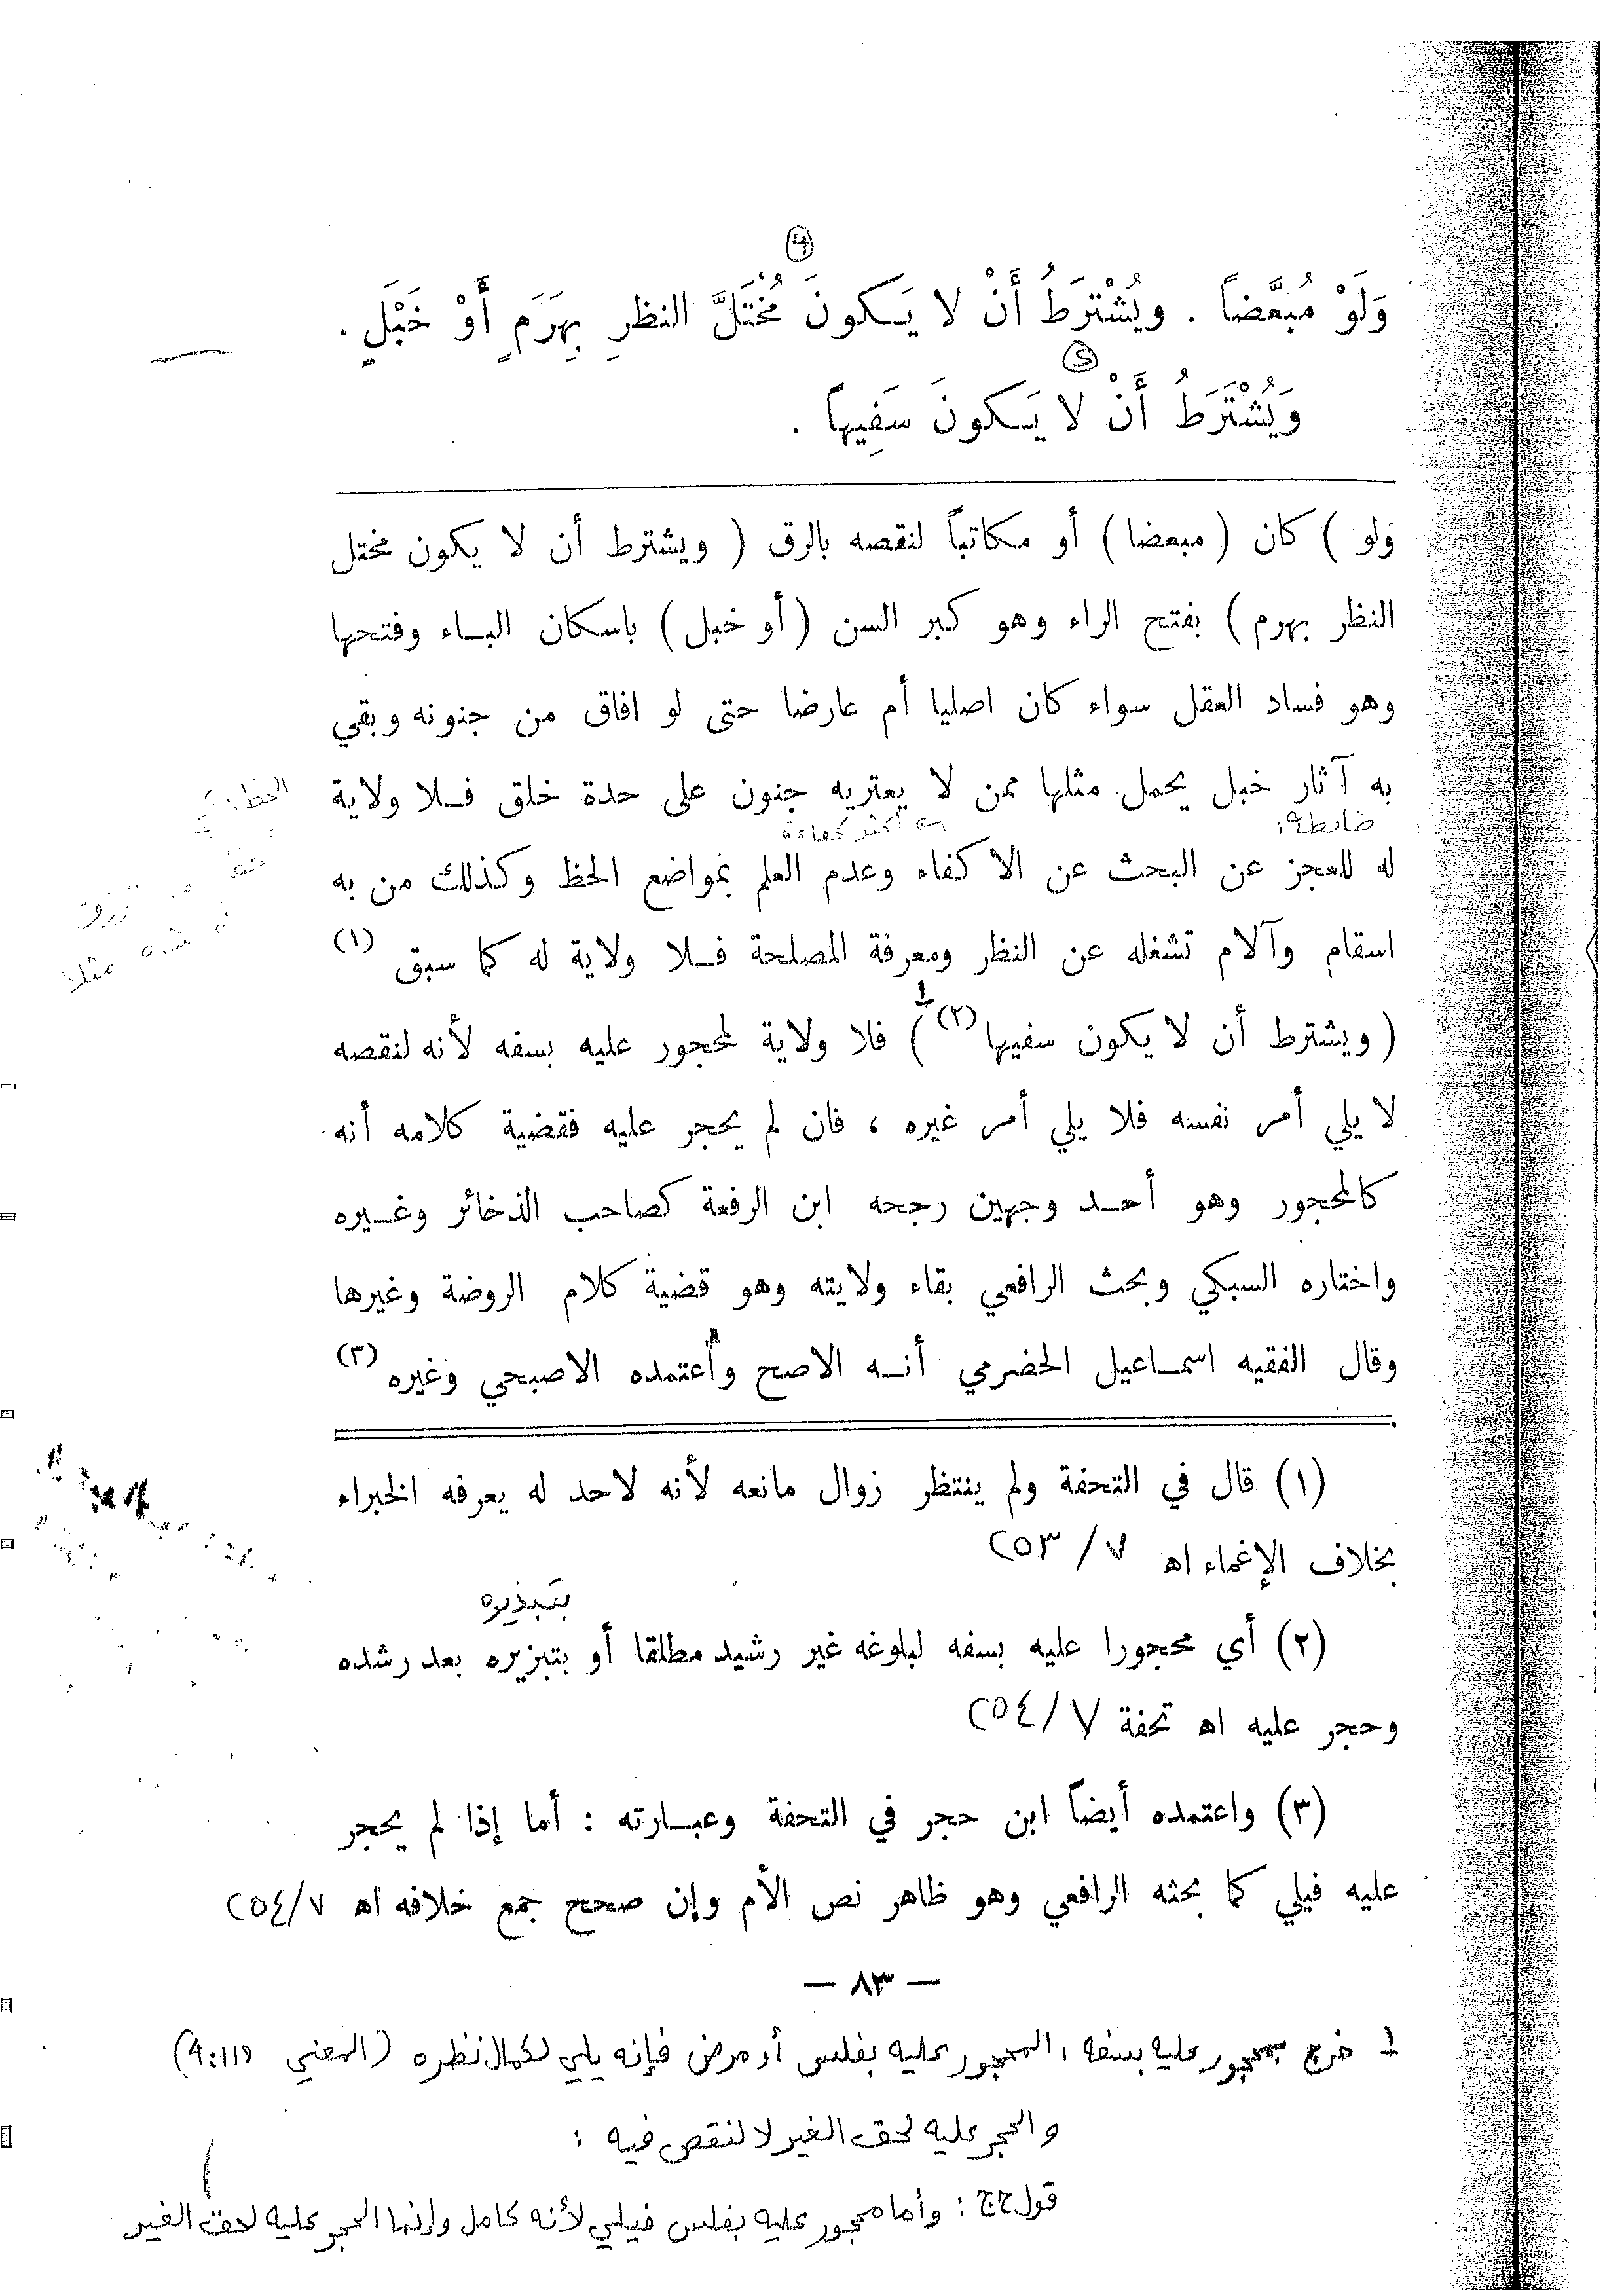 ④
وَلَوْ مُبَعَّضاً . ويُشْتَرَطُ أَنْ لا يَكونَ مُخْتَلَّ النظرِ بِهَرَمٍ أَوْ خَبْلٍ .
⑤
وَيُشْتَرَطُ أَنْ لا يَكونَ سَفِيهاً .
ولو ) كان ( مبعضا ) أو مكاتباً لنقصه بالرق ( ويشترط أن لا يكون مختل
النظر بهرم ) بفتح الراء وهو كبر السن ( أو خبل ) باسكان الباء وفتحها
وهو فساد العقل سواء كان اصليا أم عارضا حتى لو افاق من جنونه وبقي
به آثار خبل يحمل مثلها ممن لا يعتريه جنون على حدة خلق فلا ولاية
ضابطه :
له للعجز عن البحث عن الاكفاء وعدم العلم بمواضع الحظ وكذلك من به
اسقام وآلام تشغله عن النظر ومعرفة المصلحة فلا ولاية له كما سبق (١)
مثلا
( ويشترط أن لا يكون سفيها (٢) ) فلا ولاية لمحجور عليه بسفه لأنه لنقصه
لا يلي أمر نفسه فلا يلي أمر غيره ، فان لم يحجر عليه فقضية كلامه أنه
كالمحجور وهو أحد وجهين رجحه ابن الرفعة كصاحب الذخائر وغيره
واختاره السبكي وبحث الرافعي بقاء ولايته وهو قضية كلام الروضة وغيرها
وقال الفقيه اسماعيل الحضرمي أنه الاصح وأعتمده الاصبحي وغيره (٣)
(١) قال في التحفة ولم ينتظر زوال مانعه لأنه لاحد له يعرفه الخبراء
بخلاف الإغماء اه ٧/٢٥٣
بتبذيره
(٢) أي محجورا عليه بسفه لبلوغه غير رشيد مطلقا أو بتبزيره بعد رشده
وحجر عليه اه تحفة ٧/٢٥٤
(٣) واعتمده أيضاً ابن حجر في التحفة وعبارته : أما إذا لم يحجر
عليه فيلي كما بحثه الرافعي وهو ظاهر نص الأم وإن صحح جمع خلافه اه ٧/٢٥٤
— ٨٣ —
خرج بمحجور عليه بسفه ، المحجور عليه بفلس أو مرض فإنه يلي لكمال نظره ( المغني
والحجر عليه لحق الغير لا لنقص فيه :
قول حج : وأما محجور عليه بفلس فيلي لأنه كامل وإنما الحجر عليه لحق الغير